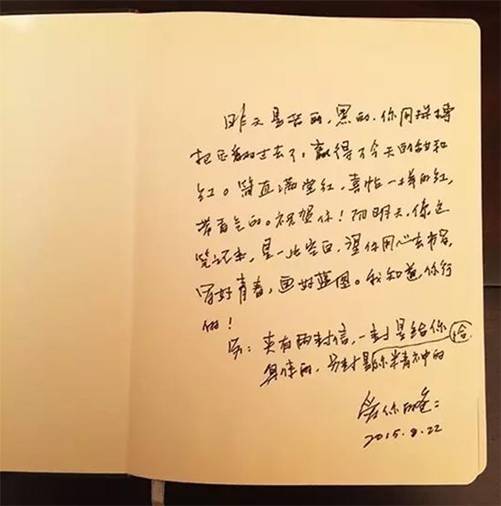 昨天是苦的，黑的，你用拼搏
把它翻过去了，赢得了今天的甜和
红。简直满堂红，喜帖一样的红，
带着气的。祝贺你！而明天，像这
笔记本，是一片空白，望你用心去书写，
写好青春，画好蓝图。我知道，你行
的！
另：夹有两封信，一封是给你
具体的，另封是给你精神的
爱你的爸爸
2015.8.22